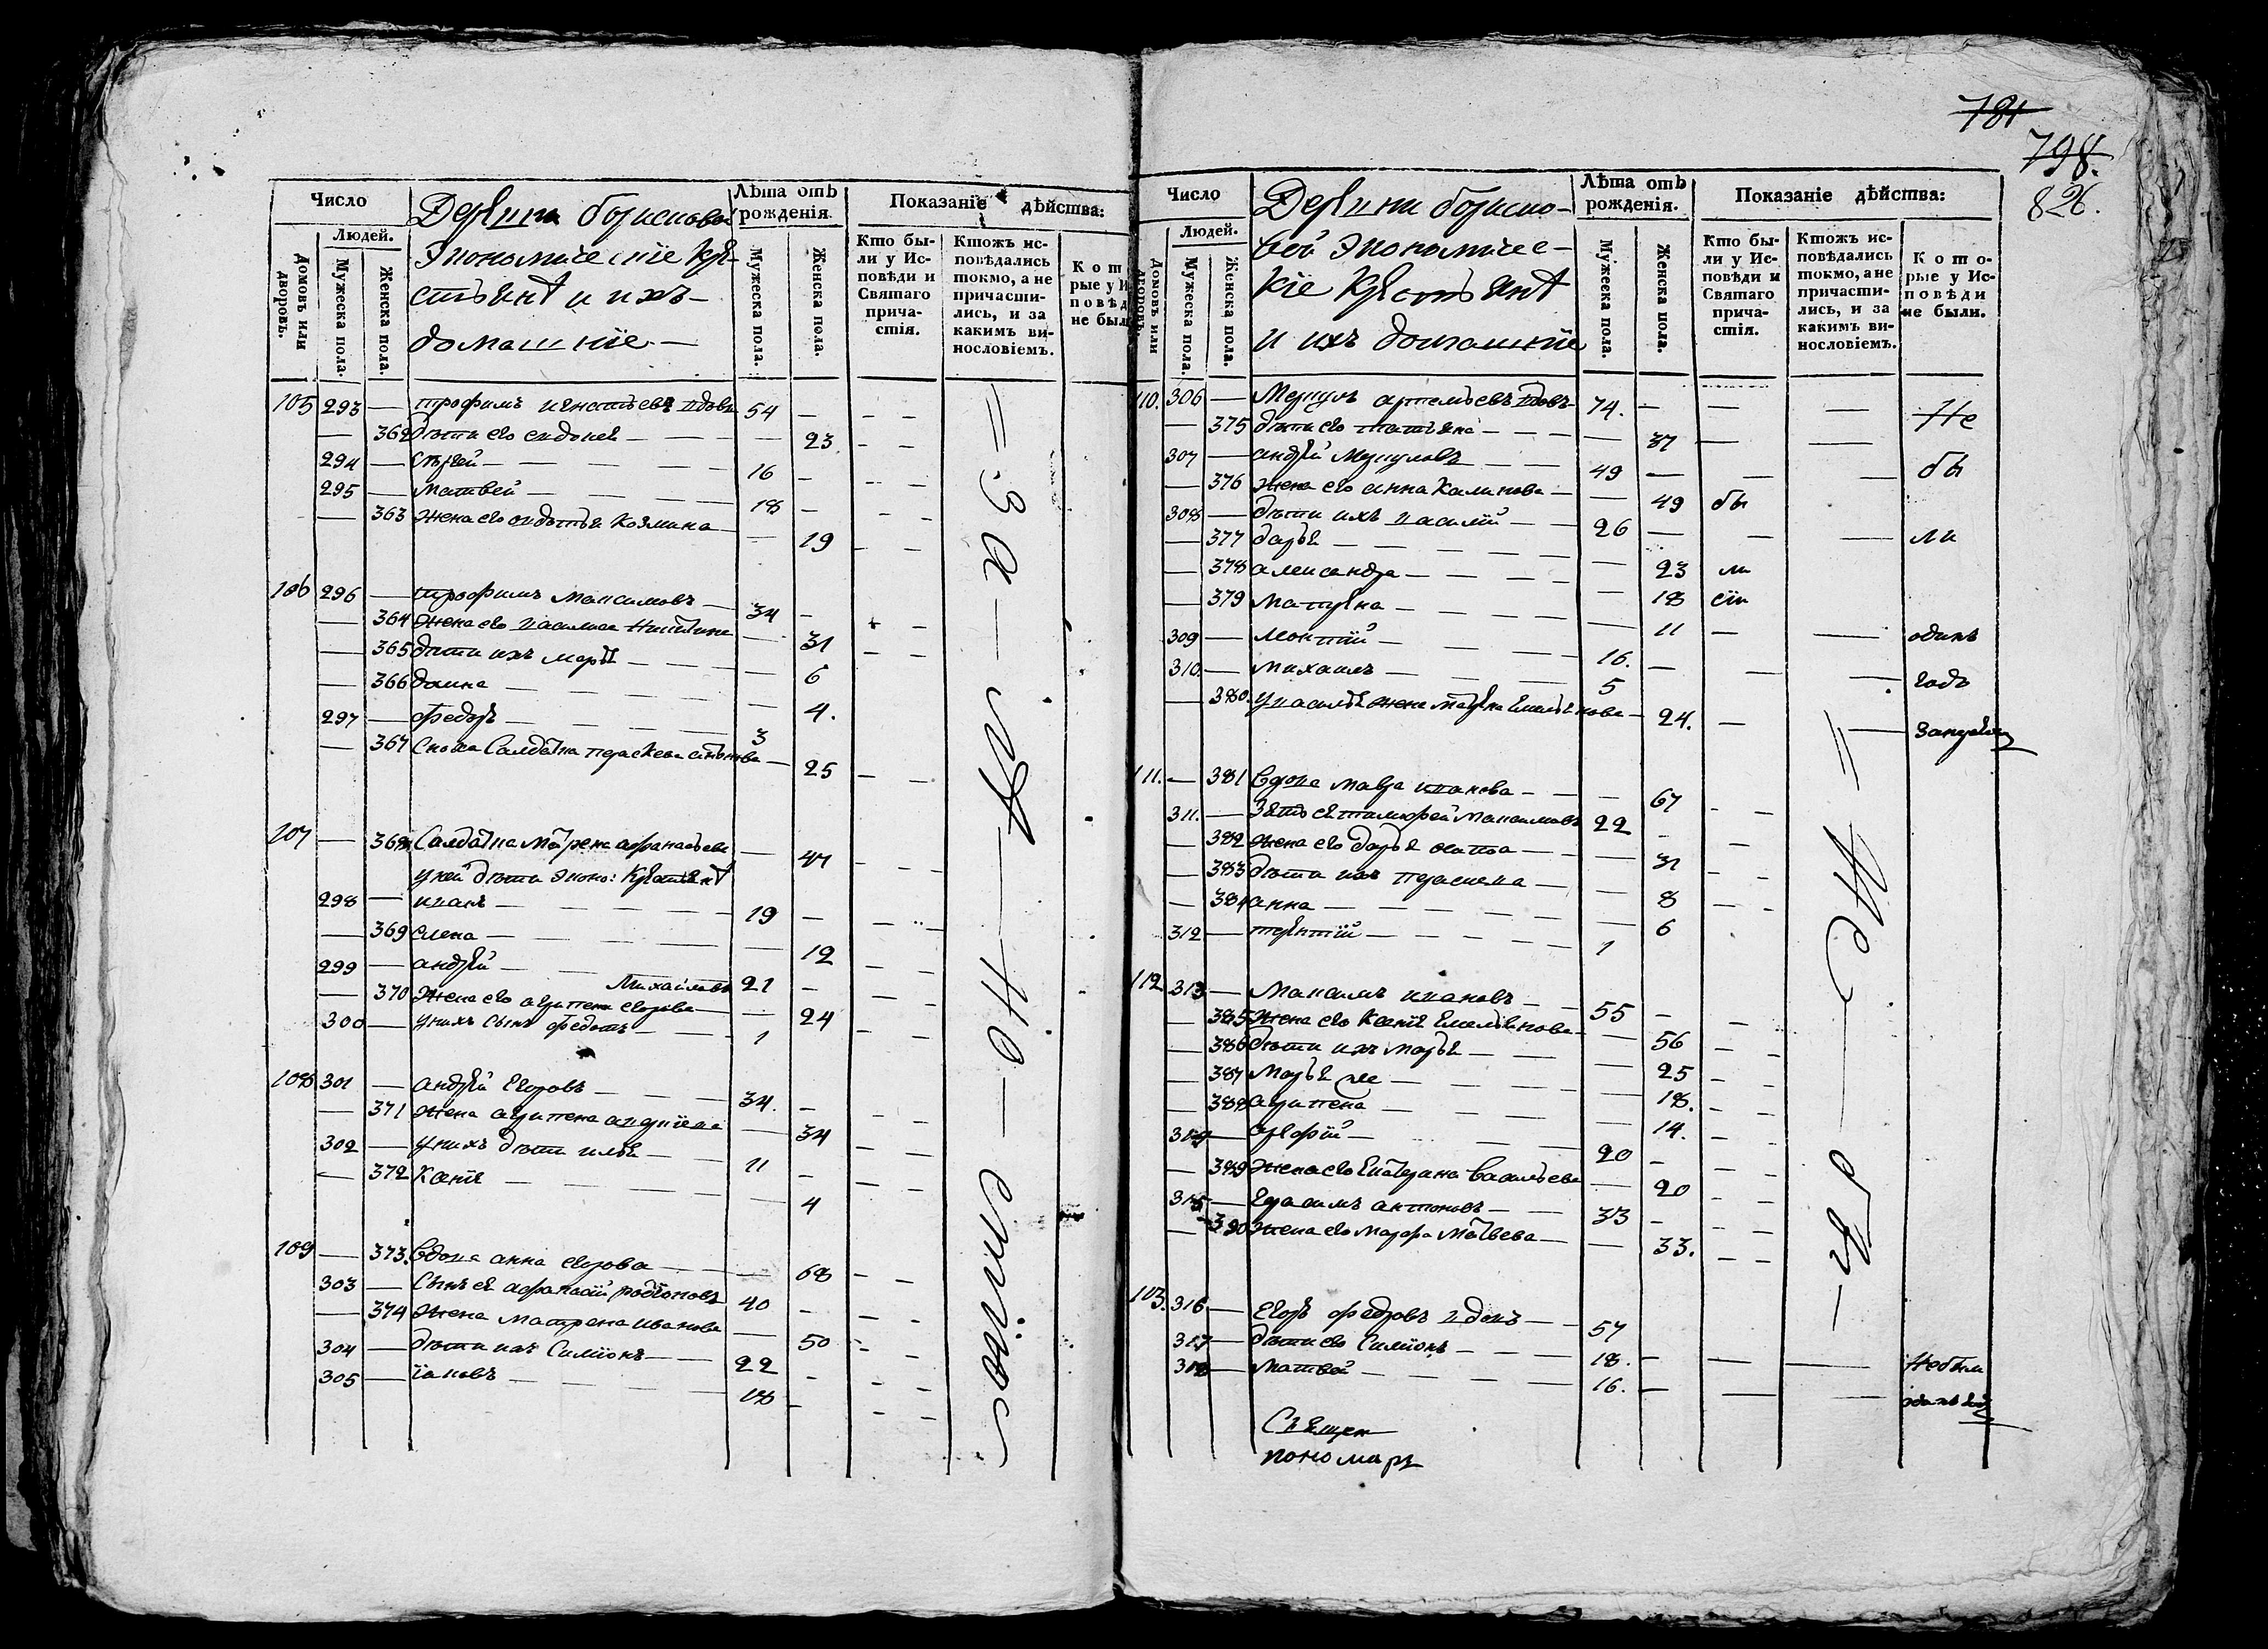 781
798.
826.
Число
Людей.
Домовъ или дворовъ.
Мужеска пола.
Женска пола.
Деревни борисовой
Экономическіе кре-
стьянѣ и ихъ
домашніе
Лѣта отъ рожденія.
Мужеска пола.
Женска пола.
Показаніе дѣйства:
Кто бы-
ли у Ис-
повѣди и
Святаго
прича-
стія.
Ктожъ ис-
повѣдались
токмо, а не
причасти-
лись, и за
какимъ ви-
нословіемъ.
Кот
рые у И
повѣд
не был
105 293 — трофимъ игнатьевъ вдовъ 54 —
— 362 дѣти его 23
294 — Сергей 16 —
295 — матвей 18 —
— 363 жена его авдотья козмина — 19
106 296 — трофимъ максимовъ 34 —
— 364 жена его василиса никитина — 31
— 365 дѣти ихъ марья — 6
— 366 домна — 4.
297 — федоръ 3
— 367 Сноха Салдатка параскева — 25
107 — 368 Салдатка матрена афанасьева — 47
у ней дѣти эконо: крестьянѣ
298 — иванъ 19 —
— 369 елена — 12
299 — андрей Михайловъ 21 —
— 370 жена его агрипена егорова — 24
300 — у нихъ сынъ федотъ 1
108 301 — андрей Егоровъ 34. —
— 371 жена агрипена андреева — 34
302 — у нихъ дѣти илья 11 —
— 372 Ксенія — 4
109 — 373. вдова анна егорова — 68
303 — сынъ ея афанасій родіоновъ 40 —
— 374 жена матрена иванова — 50
304 — дѣти ихъ Симіонъ 22 —
305 — іаковъ 18 —
Число
Людей.
Домовъ или дворовъ.
Мужеска пола.
Женска пола.
Деревни борисо-
вой экономичес-
кіе крестьянѣ
и ихъ домашніе
Лѣта отъ рожденія.
Мужеска пола.
Женска пола.
Показаніе дѣйства:
Кто бы-
ли у Ис-
повѣди и
Святаго
прича-
стія.
Ктожъ ис-
повѣдались
токмо, а не
причасти-
лись, и за
какимъ ви-
нословіемъ.
Кото-
рые у Ис-
повѣди
не были.
110. 306 — Меркулъ артемьевъ вдовъ 74. — Не
— 375 дѣти его татьяна — 37
307 — андрей Меркуловъ 49 — бы
— 376 жена его анна Калинова — 49 бы
308 — дѣти ихъ василій 26 — ли
— 377 дарья — 23 ли
— 378 александра — 18 сіи
— 379 матрена — 11
309 — леонтій 16. — одинъ
310. — михаилъ 5 годъ
— 380. у василья жена матрена Емельянова 24.
111. — 381 вдова мавра иванова — 67
311. — зять ея тимофей максимовъ 22 —
— 382 жена его дарья — 31
— 383 дѣти ихъ параскева — 8
— 384 анна — 6
312 — терентій 1
112 313 — Максимъ ивановъ 55 —
— 385 жена его Ксенія Емельянова — 56
— 386 дѣти ихъ марья — 25
— 387 Марья же — 18.
— 388 агрипена — 14.
314 — арефій 20 —
— 389 жена его Екатерина васильева — 20
315 — Герасимъ антоновъ 33 —
— 390 жена его марфа матвеева — 33.
103. 316 — Егоръ федоровъ вдовъ 57
317 — дѣти его Симіонъ 18. — Небыли
318 — матвей 16. —
Священ
пономарь